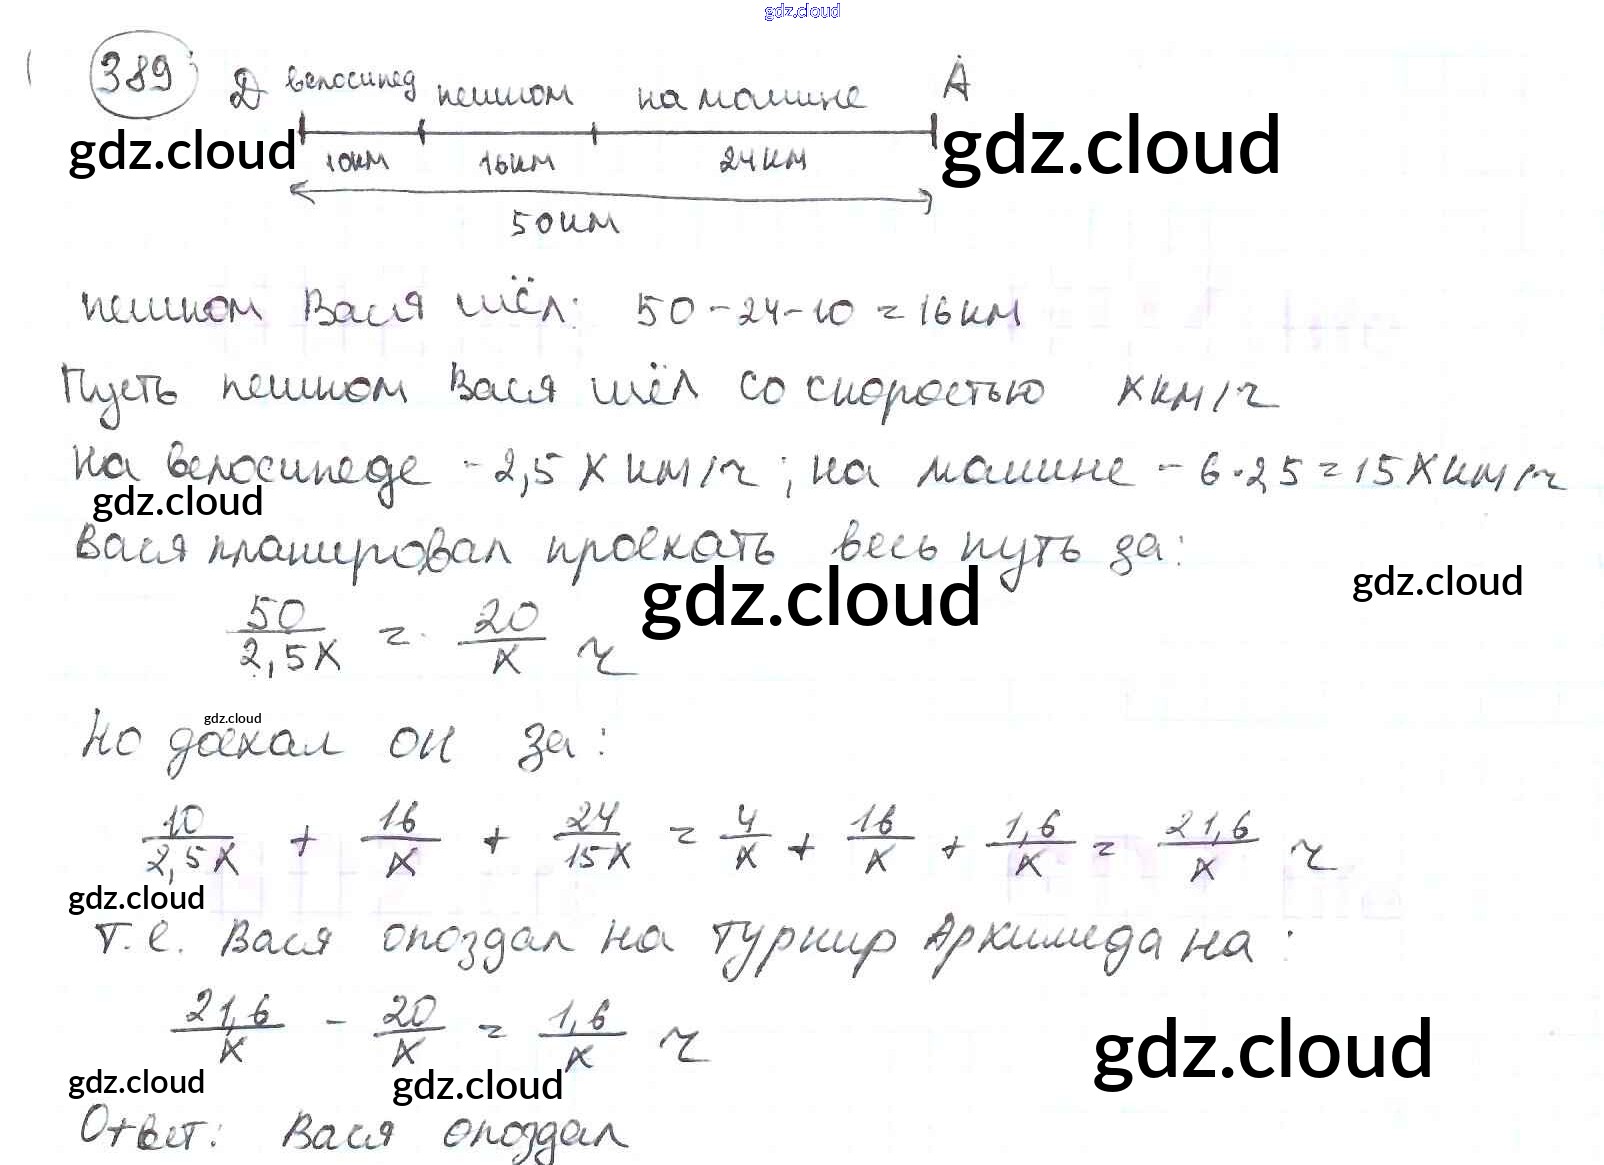 gdz.cloud
389 Д велосипед пешком на машине А
gdz.cloud 10км 16км 24км gdz.cloud
50км
пешком Вася шёл: 50-24-10=16км
Пусть пешком Вася шёл со скоростью х км/ч
На велосипеде - 2,5 х км/ч; на машине - 6·2,5=15х км/ч
gdz.cloud
Вася планировал проехать весь путь за:
gdz.cloud gdz.cloud
50/2,5х = 20/х ч
gdz.cloud
Но доехал он за:
10/2,5х + 16/х + 24/15х = 4/х + 16/х + 1,6/х = 21,6/х ч
gdz.cloud
Т.е. Вася опоздал на турнир Архимеда на:
21,6/х - 20/х = 1,6/х ч
gdz.cloud
gdz.cloud gdz.cloud
Ответ: Вася опоздал